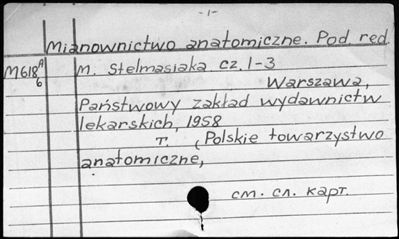 -1-
Mianownictwo anatomiczne. Pod red.
M618 A/6 M. Stelmasiaka cz. 1-3
Warszawa,
Państwowy zakład wydawnictw
lekarskich, 1958
т. (Polskie towarzystwo
anatomiczne,
см. сл. карт.